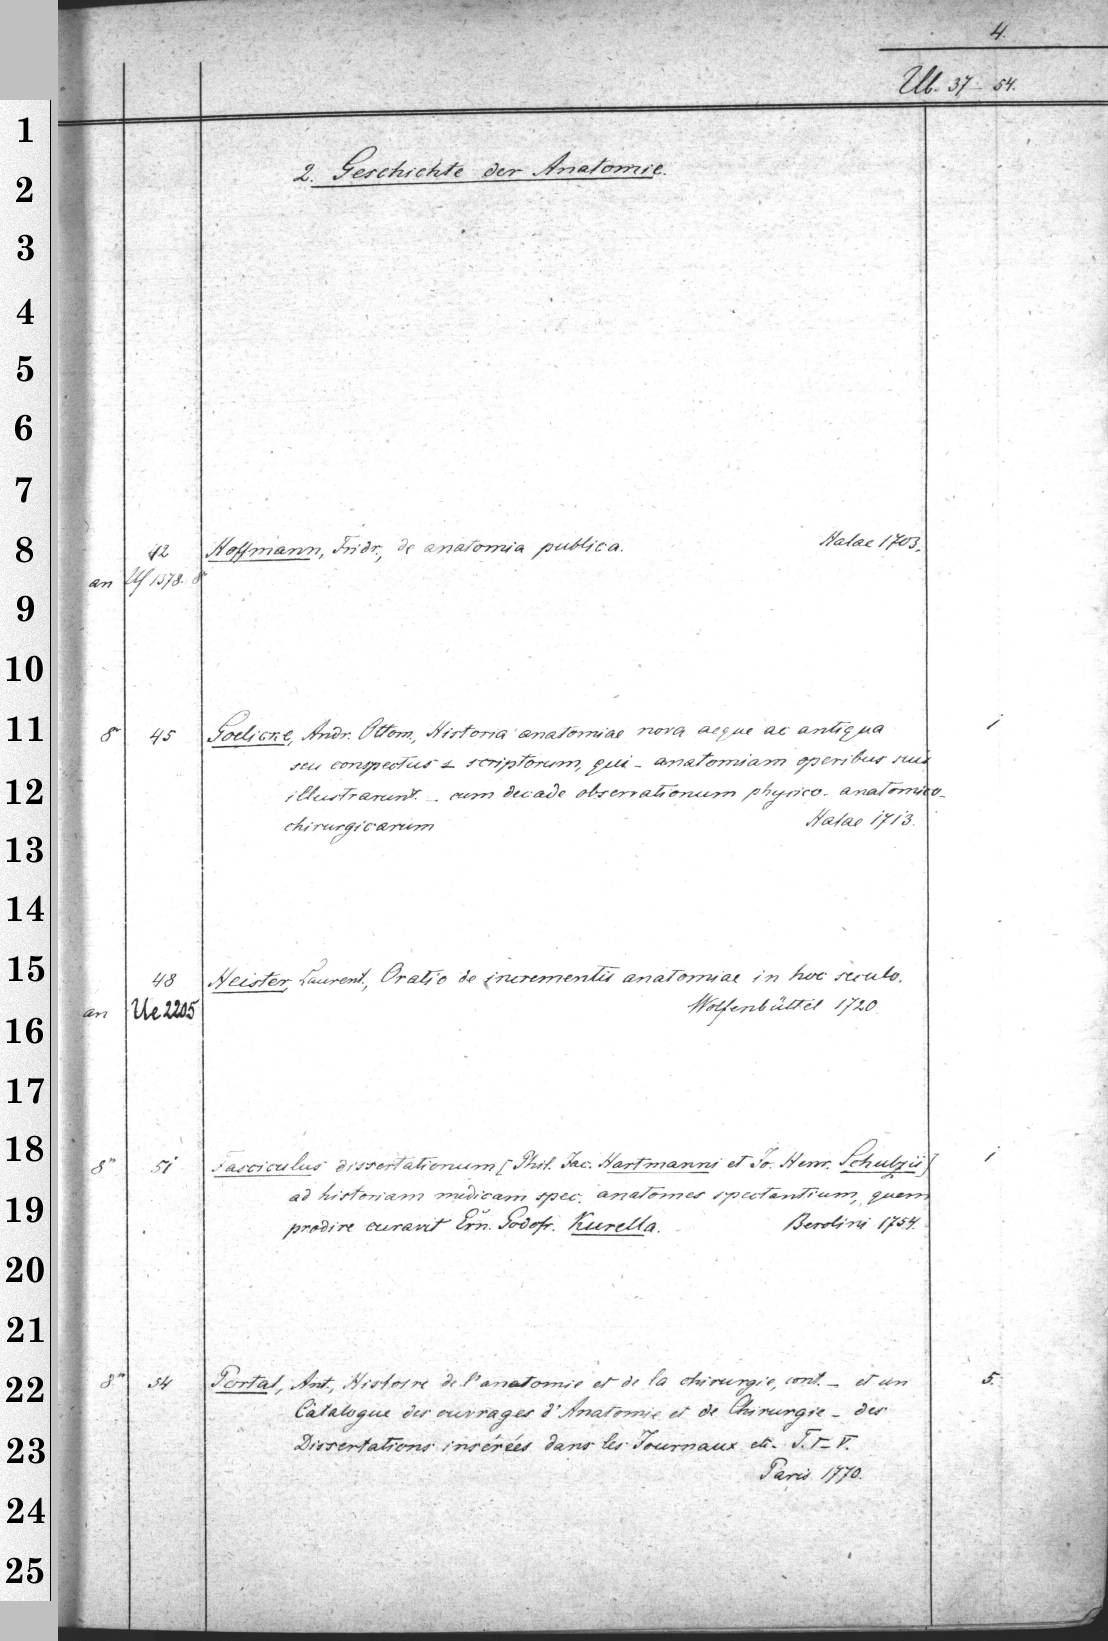 4.
Ub. 37 - 54.
1
2
3
4
5
6
7
8
9
10
11
12
13
14
15
16
17
18
19
20
21
22
23
24
25
2. Geschichte der Anatomie.
42 Hoffmann, Fridr., de anatomia publica. Halae 1703.
an Uf 1578. 8°
8° 45 Goelicke, Andr. Ottom., Historia anatomiae nova aeque ac antiqua 1
seu conspectus scriptorum, qui - anatomiam operibus suis
illustrarunt. - cum decade observationum physico- anatomico-
chirurgicarum Halae 1713.
48 Heister, Laurent., Oratio de incrementis anatomiae in hoc seculo.
an Ue 2205 Wolfenbüttel 1720.
8° 51 Fasciculus dissertationum [Phil. Jac. Hartmanni et Jo. Henr. Schulzii] 1
ad historiam medicam spec. anatomes spectantium, quem
prodire curavit Ern. Godofr. Kurella. Berolini 1754.
8° 54 Portal, Ant., Histoire de l'anatomie et de la chirurgie, cont. - et un 5.
Catalogue des ouvrages d'Anatomie et de Chirurgie - des
Dissertations insérées dans les Journaux etc. T. I-V.
Paris 1770.